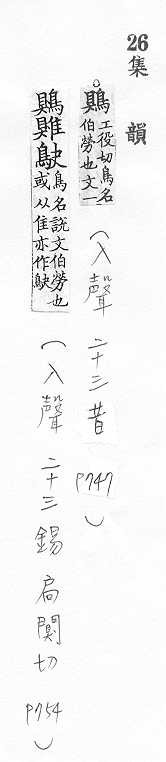 26
集韻
鶪 工役切鳥名
伯勞也文一
(入聲 二十三昔 P747)
鶪 鴃 鳥名說文伯勞也
或从隹亦作鴃
(入聲 二十三錫 扃闃切 P754)